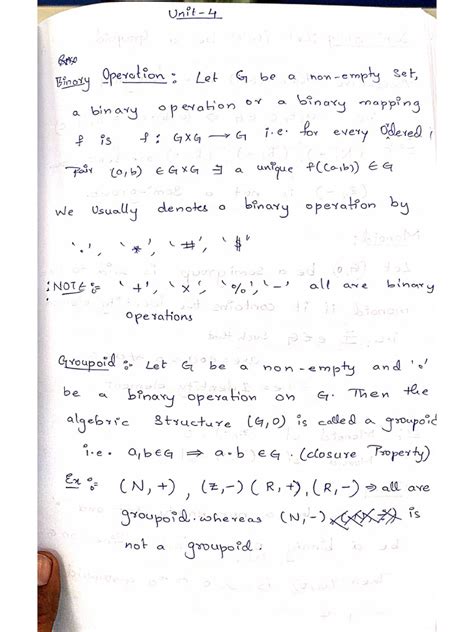 Unit-4
Binary Operation : Let G be a non-empty set,
a binary operation or a binary mapping
f is f : G×G → G i.e. for every Odered
Pair (a,b) ∈ G×G ∃ a unique f((a,b)) ∈ G
We Usually denotes a binary operation by
'.', '*', '#', '$'
:NOTE :- '+', '×', '%', '-' all are binary
operations
Groupoid :- Let G be a non-empty and 'o'
be a binary operation on G. Then the
algebric structure (G,O) is called a groupoid
i.e. a,b∈G ⇒ a·b ∈G. (closure Property)
Ex :- (N,+), (Z,-) (R,+), (R,-) ⇒ all are
groupoid. whereas (N,-) is
not a groupoid.